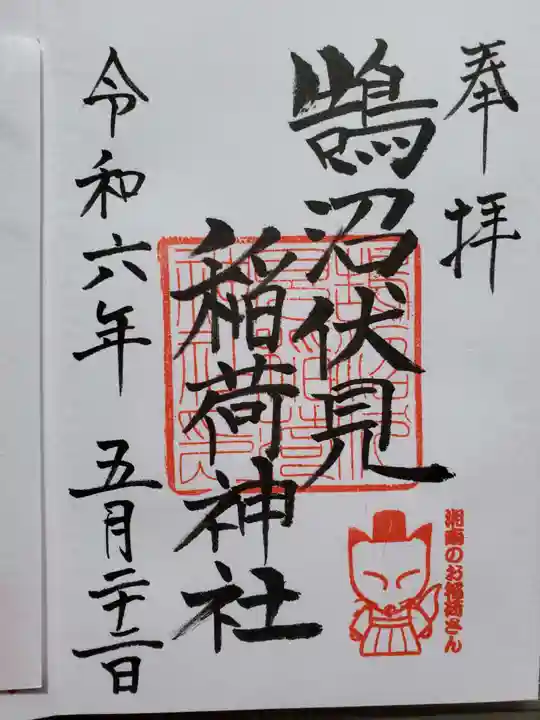 奉拝
鵠沼伏見
稲荷神社
令和六年 五月二十二日
湘南のお稲荷さん